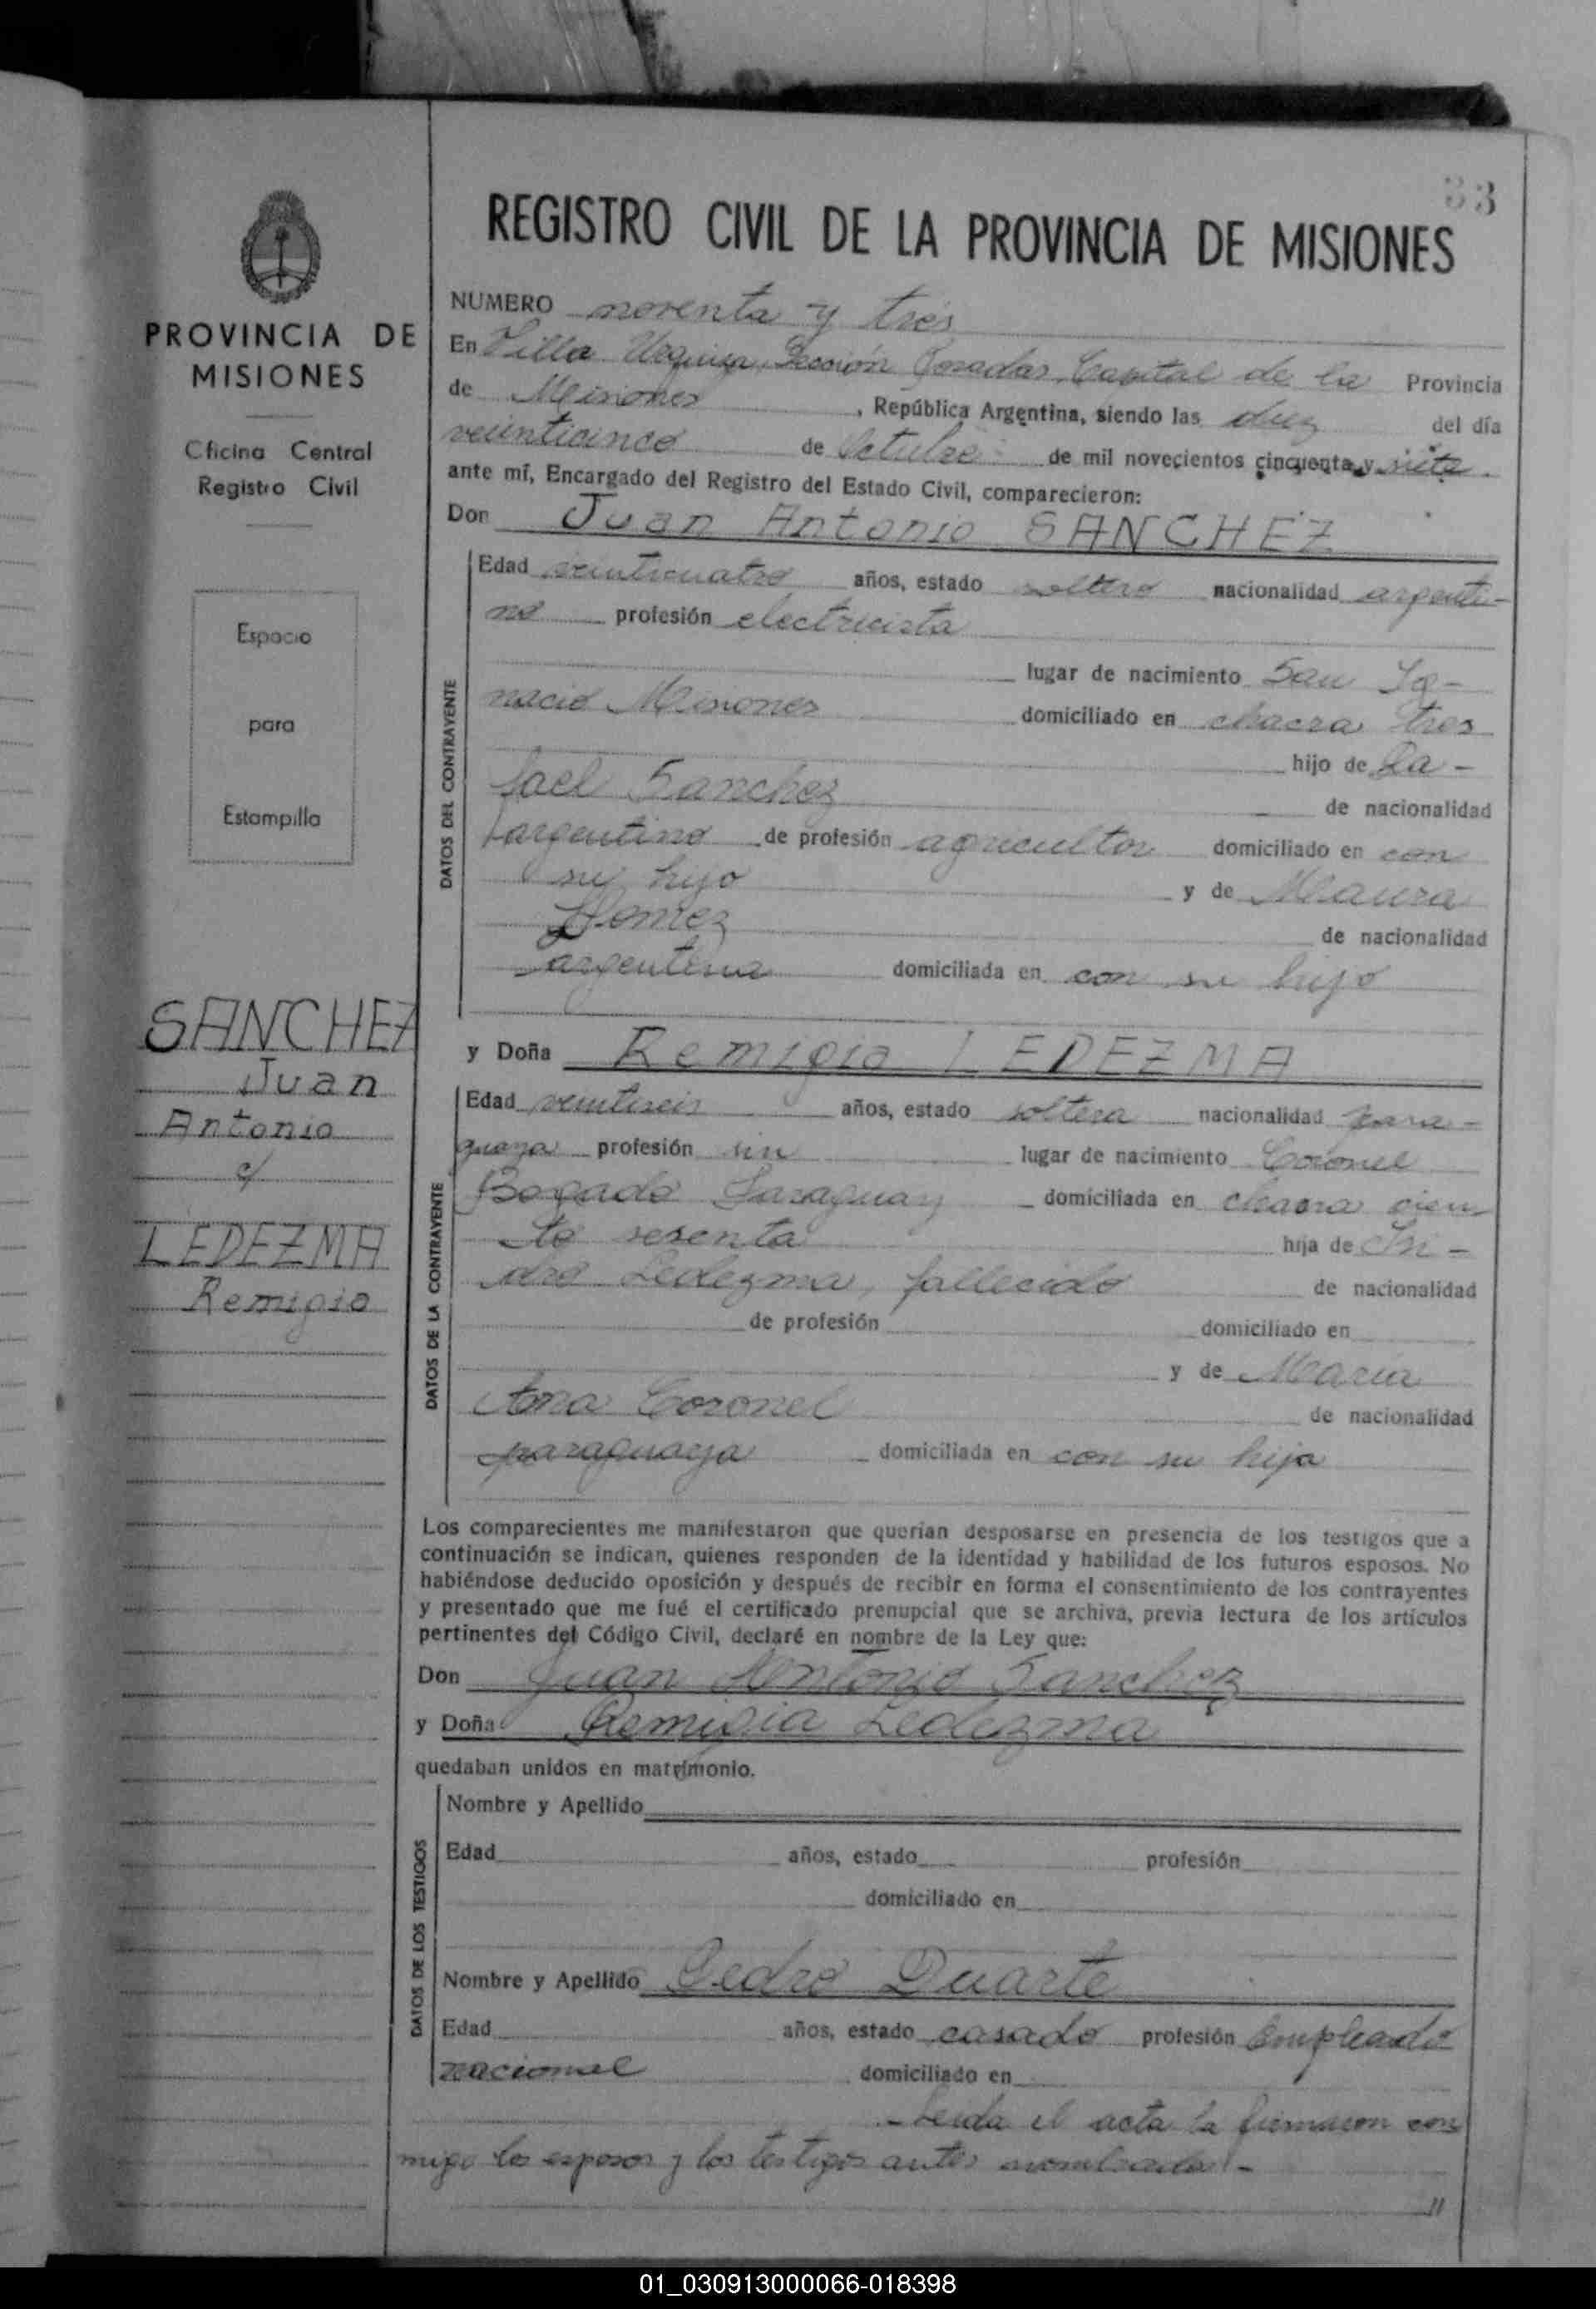 33
REGISTRO CIVIL DE LA PROVINCIA DE MISIONES
PROVINCIA DE
MISIONES
Oficina Central
Registro Civil
Espacio
para
Estampilla
SANCHEZ
Juan
Antonio
c/
LEDEZMA
Remigia
NUMERO noventa y tres
En Villa Urquiza Sección Posadas Capital de la Provincia
de Misiones, República Argentina, siendo las diez del día
veinticinco de Octubre de mil novecientos cincuenta y siete.
ante mí, Encargado del Registro del Estado Civil, comparecieron:
Don Juan Antonio SANCHEZ
DATOS DEL CONTRAYENTE
Edad veinticuatro años, estado soltero nacionalidad argenti-
no profesión electricista
lugar de nacimiento San Ig-
nacio Misiones domiciliado en chacra tres
hijo de Ra-
fael Sanchez de nacionalidad
argentino de profesión agricultor domiciliado en con
su hijo y de Maura
Gomez de nacionalidad
argentina domiciliada en con su hijo
y Doña Remigia LEDEZMA
DATOS DE LA CONTRAYENTE
Edad veintiseis años, estado soltera nacionalidad para-
guaya profesión sin lugar de nacimiento Coronel
Bogado Paraguay domiciliada en chacra cien
to sesenta hija de Isi-
dro Ledezma, fallecido de nacionalidad
de profesión domiciliado en
y de Maria
Ana Coronel de nacionalidad
paraguaya domiciliada en con su hija
Los comparecientes me manifestaron que querían desposarse en presencia de los testigos que a
continuación se indican, quienes responden de la identidad y habilidad de los futuros esposos. No
habiéndose deducido oposición y después de recibir en forma el consentimiento de los contrayentes
y presentado que me fué el certificado prenupcial que se archiva, previa lectura de los artículos
pertinentes del Código Civil, declaré en nombre de la Ley que:
Don Juan Antonio Sanchez
y Doña Remigia Ledezma
quedaban unidos en matrimonio.
DATOS DE LOS TESTIGOS
Nombre y Apellido
Edad años, estado profesión
domiciliado en
Nombre y Apellido Pedro Duarte
Edad años, estado casado profesión Empleado
nacional domiciliado en
Leida el acta la firmaron con
migo los esposos y los testigos antes nombrados.-
01_030913000066-018398